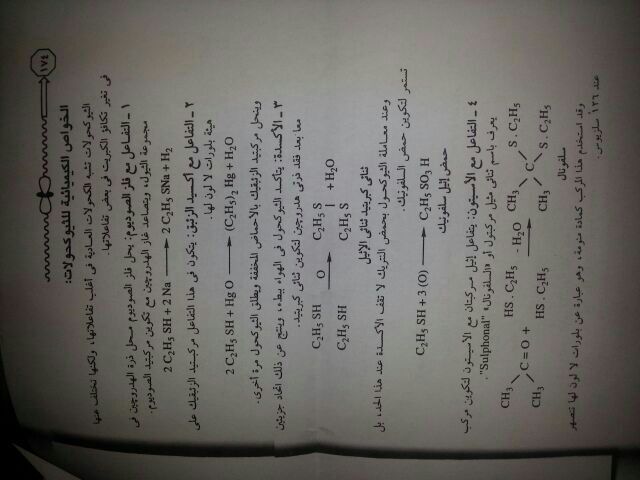 ١٧٤
الخواص الكيميائية للثيوكحولات:
الثيوكحولات تشبه الكحولات العادية فى أغلب تفاعلاتها، ولكنها تختلف عنها
فى تغير تكافؤ الكبريت فى بعض تفاعلاتها.
١ ـ التفاعل مع فلز الصوديوم: يحل فلز الصوديوم محل ذرة الهدروجين فى
مجموعة الثيول، ويتصاعد غاز الهدروجين مع تكوين مركبتيد الصوديوم.
2 C₂H₅ SH + 2 Na ⟶ 2 C₂H₅ SNa + H₂
٢ ـ التفاعل مع أكسيد الزئبق: يتكون فى هذا التفاعل مركبتيد الزئبقيك على
هيئة بلورات لا لون لها.
2 C₂H₅ SH + Hg O ⟶ (C₂H₅)₂ Hg + H₂O
وينحل مركبتيد الزئبقيك بالأحماض المخففة ويطلق الثيوكحول مرة أخرى.
٣ ـ الأكسدة: يتأكسد الثيوكحول فى الهواء ببطء، وينتج عن ذلك اتحاد جزيئين
معا بعد فقد ذرتى هدروجين لتكوين ثنائى كبريتيد.
C₂H₅ SH C₂H₅ S
O ⟶ | + H₂O
C₂H₅ SH C₂H₅ S
ثنائى كبريتيد ثنائى الإثيل
وعند معاملة الثيوكحول بحمض النتريك لا تقف الأكسدة عند هذا الحد، بل
تستمر لتكوين حمض السلفونيك.
C₂H₅ SH + 3 (O) ⟶ C₂H₅ SO₃ H
حمض إثيل سلفونيك
٤ ـ التفاعل مع الأسيتون: يتفاعل إثيل مركبتان مع الأسيتون لتكوين مركب
يعرف باسم ثنائى مثيل مركبتول أو «السلفونال» "Sulphonal".
CH₃ HS . C₂H₅ - H₂O CH₃ S . C₂H₅
C = O + ⟶ C
CH₃ HS . C₂H₅ CH₃ S . C₂H₅
سلفونال
وقد استخدم هذا المركب كمادة منومة، وهو عبارة عن بلورات لا لون لها تنصهر
عند ١٢٦ سلزيوس.